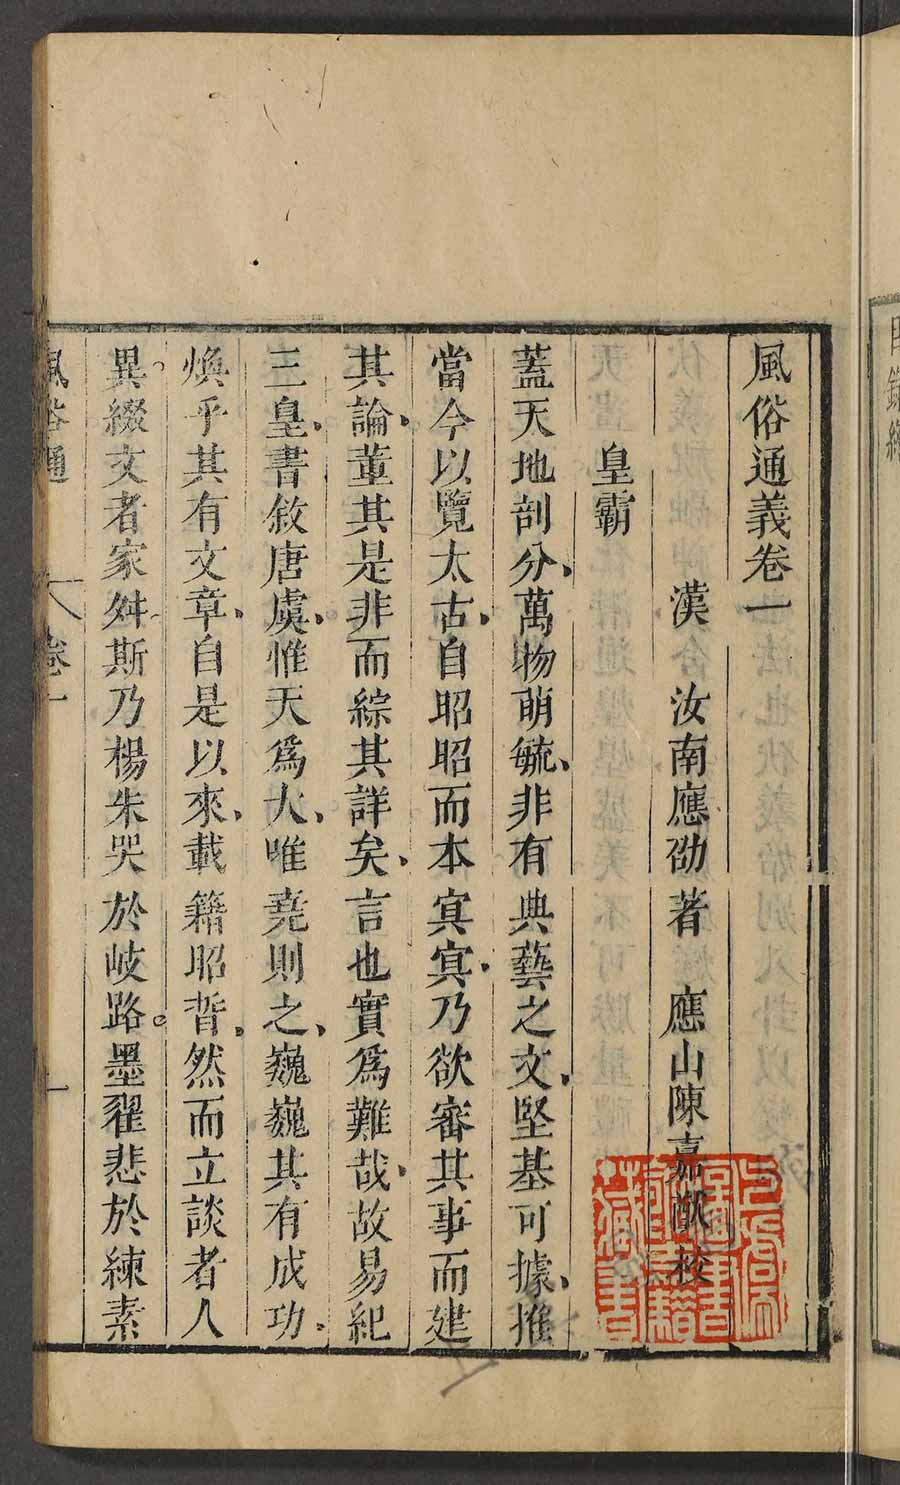 風俗通義卷一
漢 汝南應劭著 應山陳嘉猷校
皇霸
蓋天地剖分萬物萌毓非有典藝之文堅基可據推
當今以覽太古自昭昭而本冥冥乃欲審其事而建
其論董其是非而綜其詳矣言也實爲難哉故易紀
三皇書敘唐虞惟天爲大唯堯則之巍巍其有成功
煥乎其有文章自是以來載籍昭晢然而立談者人
異綴文者家舛斯乃楊朱哭於岐路墨翟悲於練素
風俗通 卷一 一